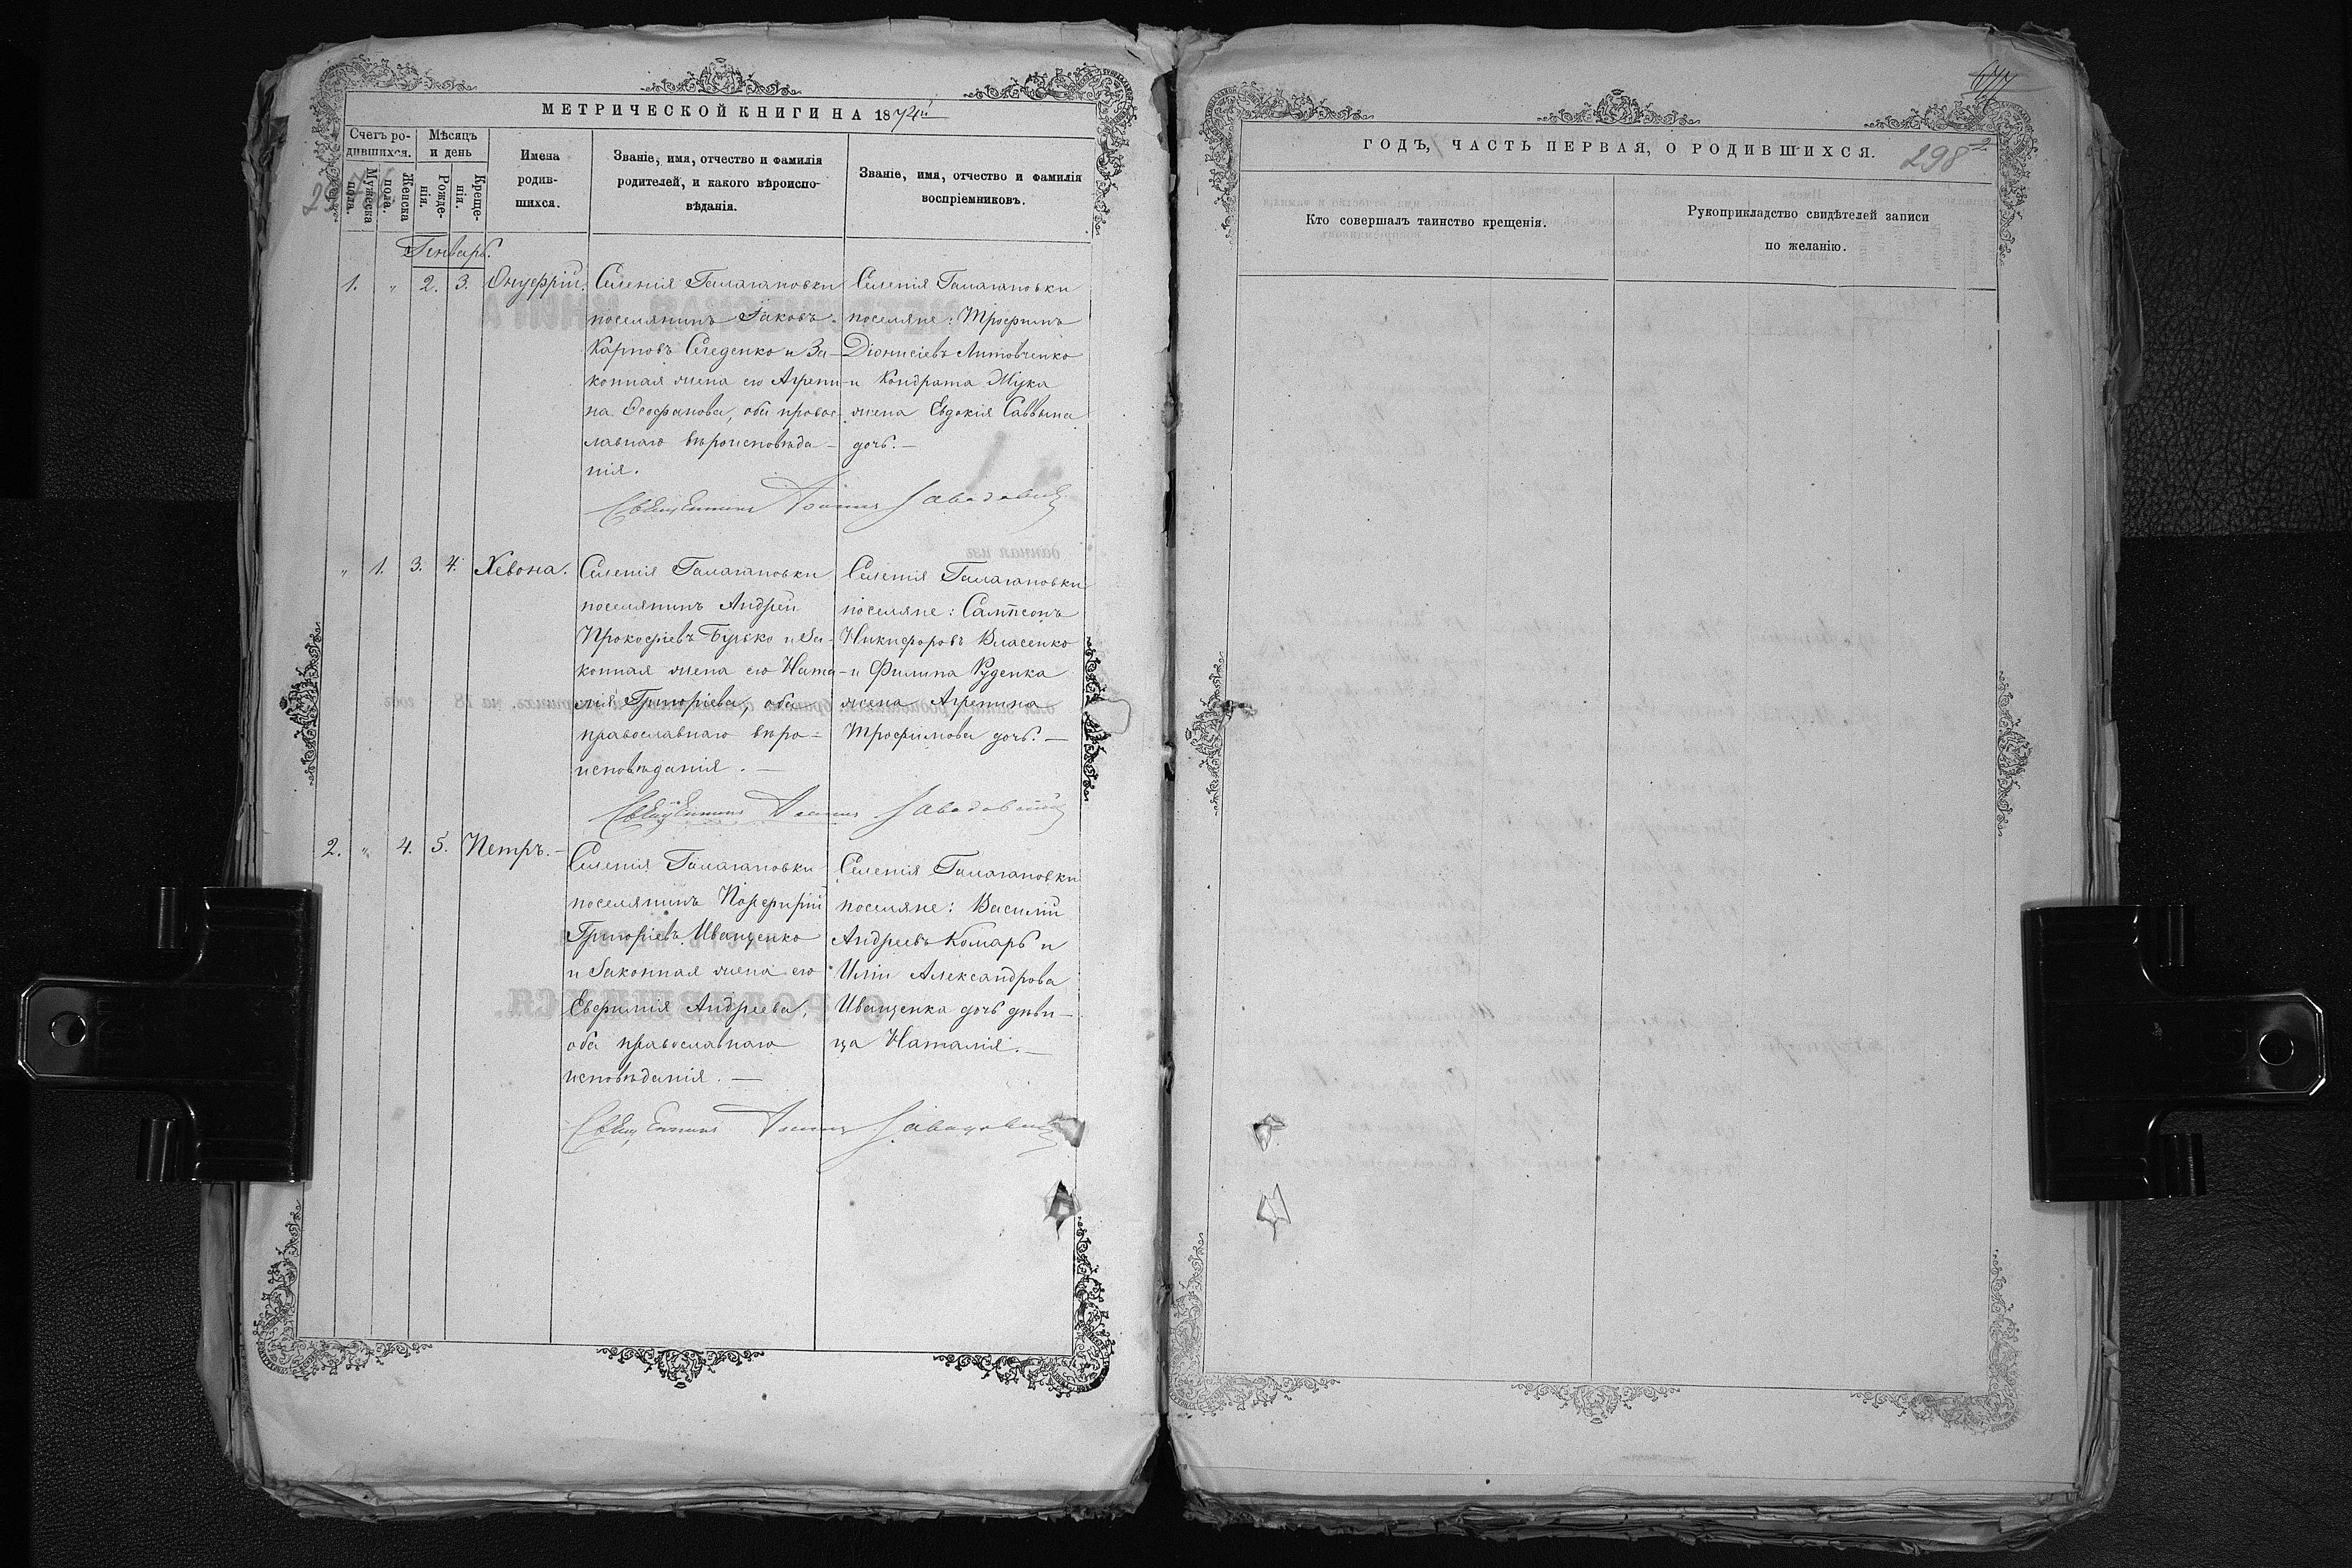 МЕТРИЧЕСКОЙ КНИГИ НА 1874й
Счетъ ро-
дившихся.
Мужеска
пола.
Женска
пола.
Мѣсяцъ
и день
Рожде-
нія.
Креще-
нія.
Имена
родив-
шихся.
Званіе, имя, отчество и фамилія
родителей, и какого вѣроиспо-
вѣданія.
Званіе, имя, отчество и фамилія
воспріемниковъ.
Генварь.
1. " 2. 3. Онуфрій.
Селенія Галагановки
поселянинъ Іаковъ
Карповъ Середенко и За-
конная жена его Агрепи-
на Ѳеофанова, оба правос-
лавнаго вѣроисповѣда-
нія.
Селенія Галагановки
поселяне: Трофимъ
Діонисіевъ Литовченко
и Кондрата Жука
жена Евдокія Саввына
дочь.—
Священникъ Іоаннъ Завадовскій
" 1. 3. 4. Хевона.
Селенія Галагановки
поселянинъ Андрей
Прокофіевъ Бузько и За-
конная жена его Ната-
лія Григоріева, оба
православнаго вѣро-
исповѣданія.—
Селенія Галагановки
поселяне: Сампсонъ
Никифоровъ Власенко
и Филипа Руденка
жена Агрепина
Трофимова дочь.—
Священникъ Іоаннъ Завадовскій
2. " 4. 5. Петръ.—
Селенія Галагановки
поселянинъ Порфирій
Григоріевъ Иващенко
и Законная жена его
Евфимія Андреева,
оба православнаго
исповѣданія.—
Селенія Галагановки
поселяне: Василій
Андреевъ Комарь и
Иліи Александрова
Иващенка дочь дѣви-
ца Наталія.—
Священникъ Іоаннъ Завадовскій
677
ГОДЪ, ЧАСТЬ ПЕРВАЯ, О РОДИВШИХСЯ.
298
2
Кто совершалъ таинство крещенія.
Рукоприкладство свидѣтелей записи
по желанію.